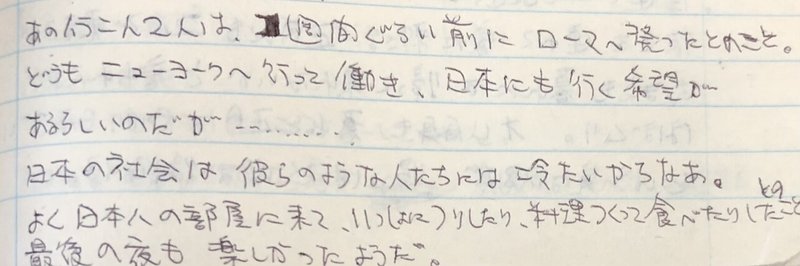 あのイラン人2人は、1週間ぐらい前にローマへ発ったとのこと。
どうもニューヨークへ行って働き、日本にも行く希望が
あるらしいのだが………
日本の社会は彼らのような人たちには冷たいからなあ。
よく日本人の部屋に来て、いっしょに したり、料理つくって食べたりしたとのこと
最後の夜も楽しかったようだ。